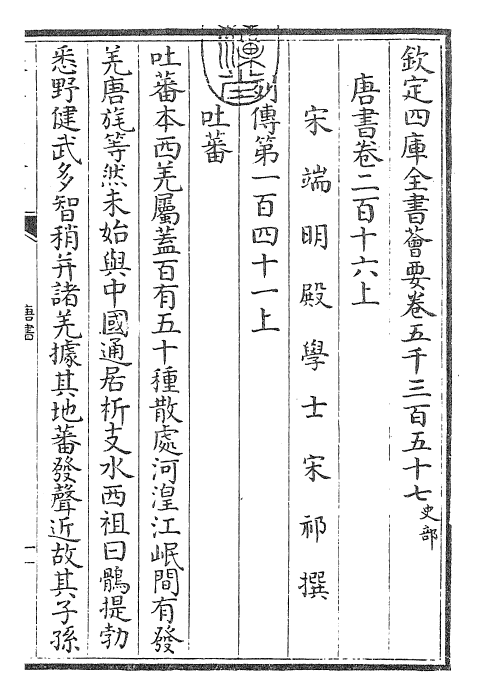 欽定四庫全書薈要卷五千三百五十七史部
唐書卷二百十六上
宋端明殿學士宋祁撰
列傳第一百四十一上
吐蕃
吐蕃本西羌屬蓋百有五十種散處河湟江岷間有發
羌唐旄等然未始與中國通居析支水西祖曰鶻提勃
悉野健武多智稍并諸羌據其地蕃發聲近故其子孫
唐書
一